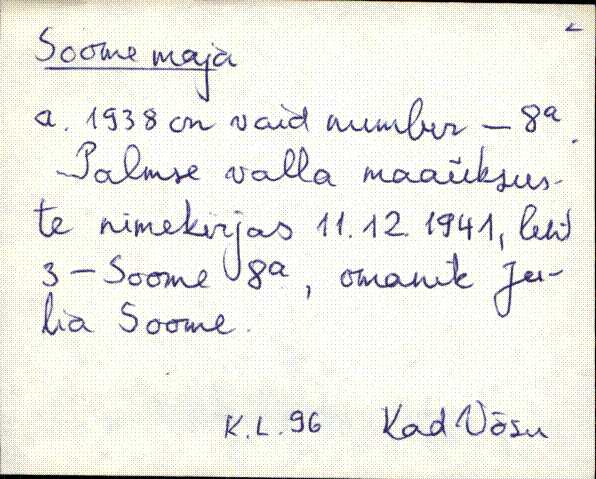 Soome maja
a. 1938 on vaid number – 8a.
Palmse valla maaüksus-
te nimekirjas 11.12.1941, leht
3 – Soome 8a, omanik Ju-
lia Soome.
K.L.96 Kad Võsu